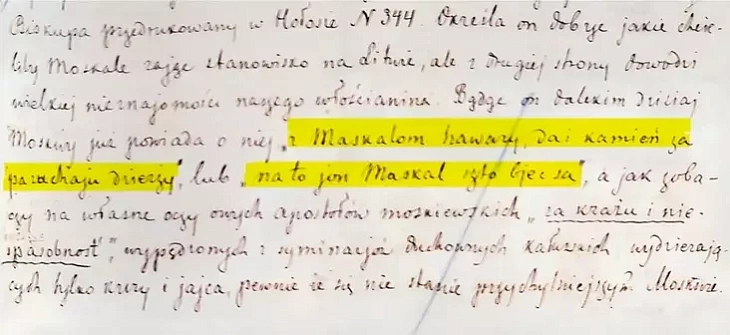 Biskupa przedrukowany w Hołosie N 344. Określa on dobrze jakie chcie-
liby Moskale zająć stanowisko na Litwie, ale z drugiej strony dowodzi
wielkiej nieznajomości naszego włościanina. Będąc on dalekim dzisiaj
Moskwy już powiada o niej „z Maskalom hawary, da i kamień za
pazachaju dzierży", lub „na to jon Maskal szto bjecsa", a jak zoba-
czy na własne oczy owych apostołów moskiewskich „za krażu i nie-
spasobnost", wypędzonych z syminacjów duchownych kałuskich wydzierają-
cych tylko kury i jajca, pewnie że się nie stanie przychylniejszym Moskwie.